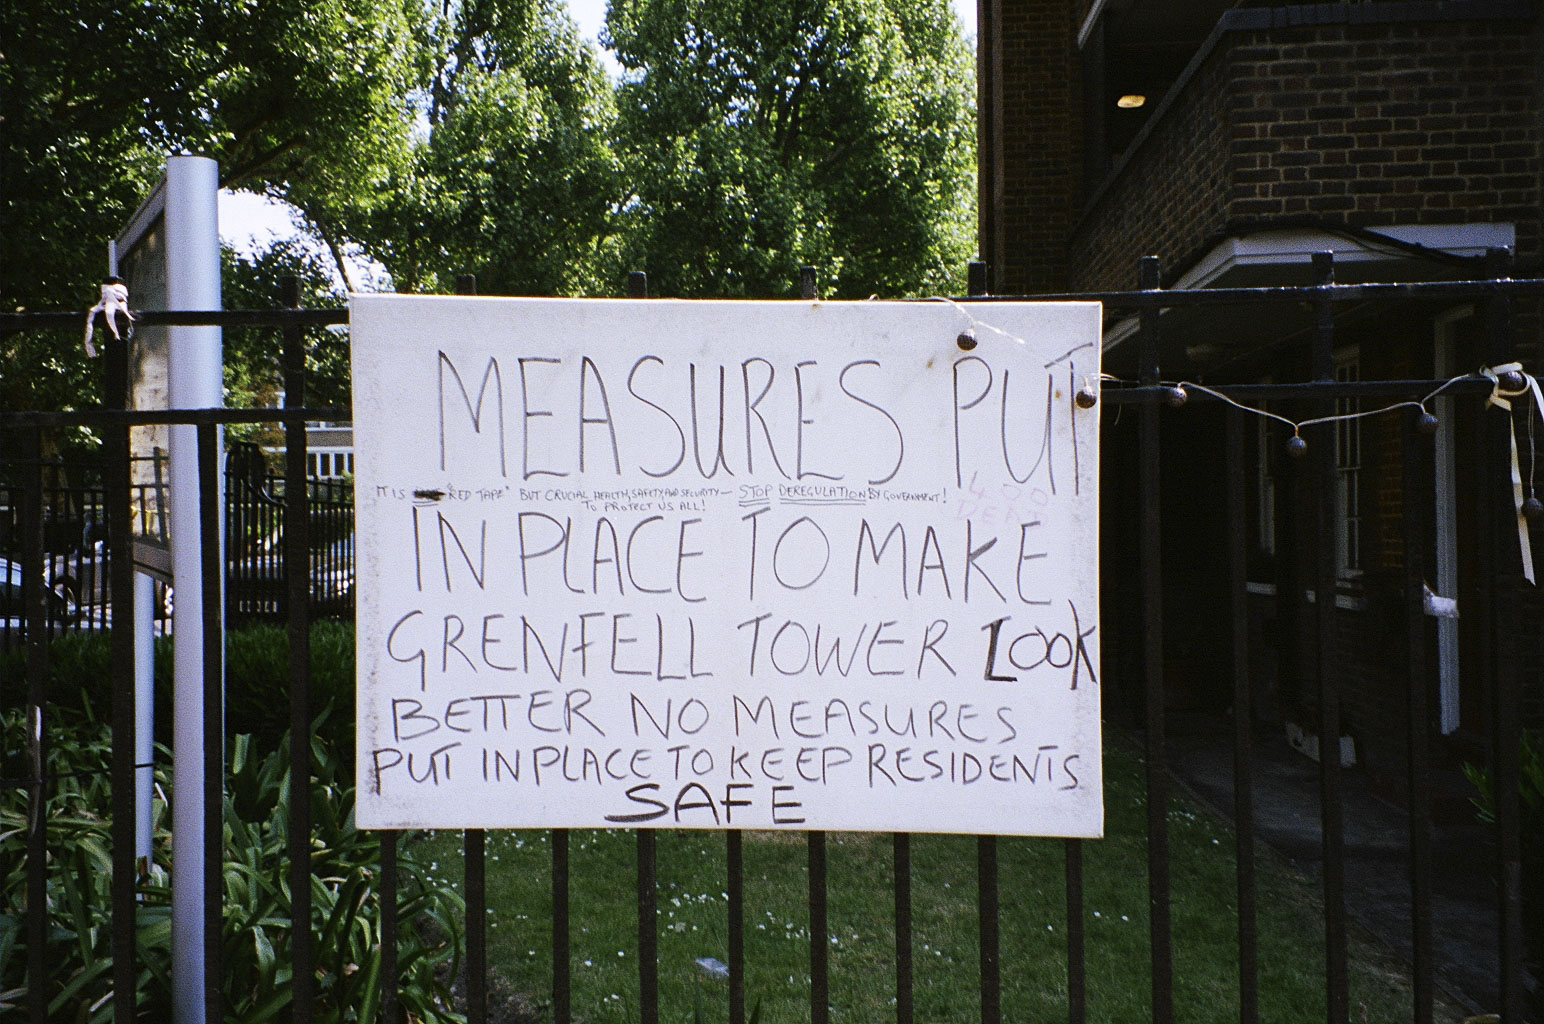 MEASURES PUT
IT IS "RED TAPE" BUT CRUCIAL HEALTH, SAFETY AND SECURITY — STOP DEREGULATION BY GOVERNMENT!
TO PROTECT US ALL!
IN PLACE TO MAKE
GRENFELL TOWER LOOK
BETTER NO MEASURES
PUT IN PLACE TO KEEP RESIDENTS
SAFE